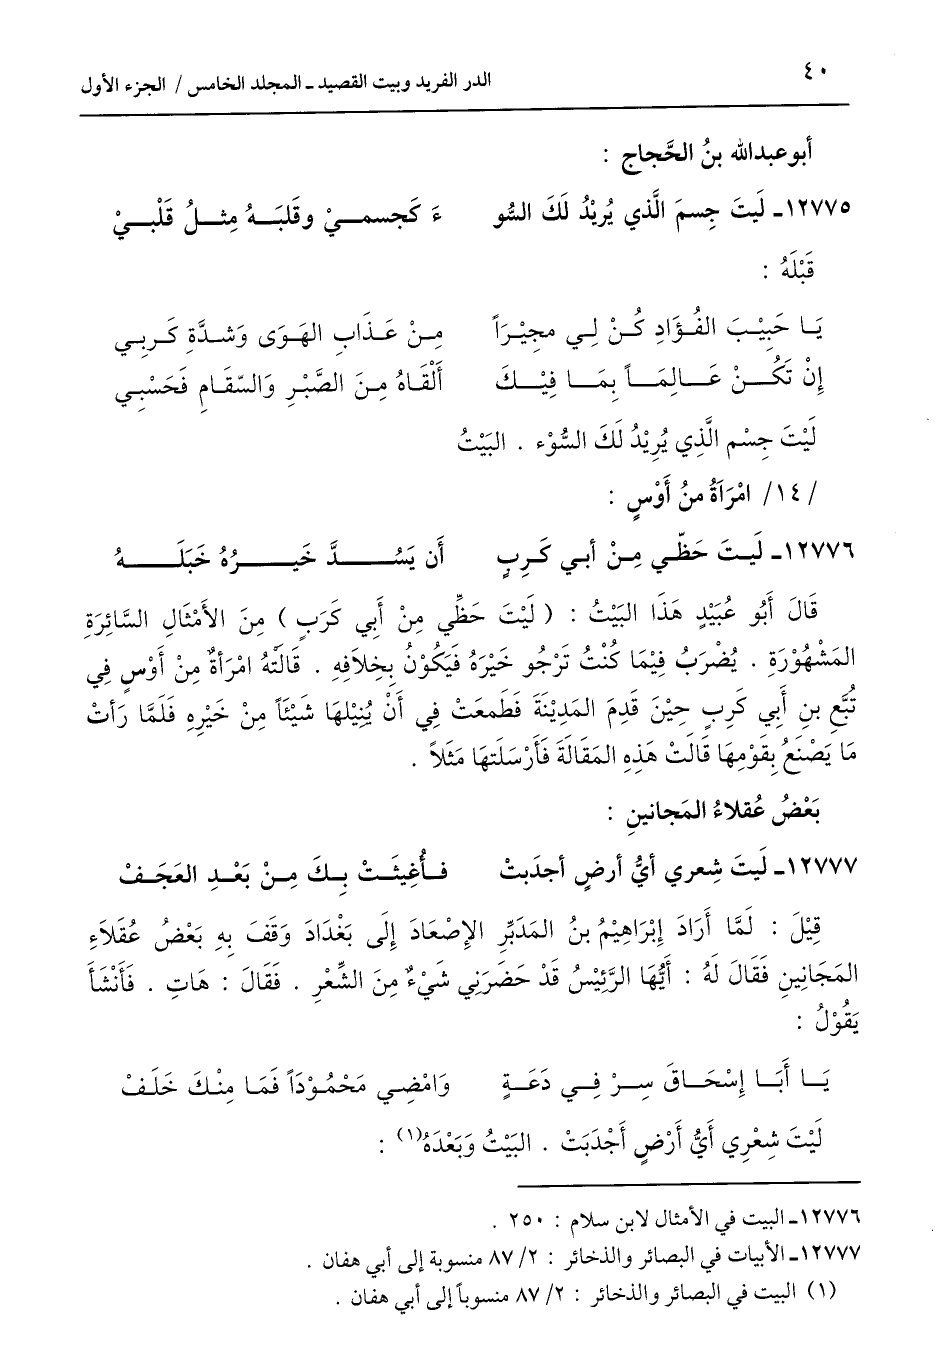 ٤٠
الدر الفريد وبيت القصيد ـ المجلد الخامس / الجزء الأول
أبو عبدالله بنُ الحَّجاج :
١٢٧٧٥ـ لَيتَ جِسمَ الَّذي يُريْدُ لَكَ السُّو ءَ كَجسمـيْ وقلبَـهُ مِثـلُ قلْبـيْ
قَبْلَهُ :
يَـا حَبِيْبَ الفُـؤَادِ كُـنْ لِـي مجِيْـرَاً مِـنْ عَـذَابِ الهَـوَى وَشدَّةِ كَـربِي
إِنْ تَكُـنْ عَـالِمَـاً بِمَـا فِيْـكَ أَلْقَاهُ مِـنَ الصَّبْـرِ وَالسِّقَـامِ فَحَسْبِي
لَيْتَ جِسْم الَّذِي يُرِيْدُ لَكَ السُّوْء . البَيْتُ
/١٤/ امْرَأَةُ منُ أَوْسٍ :
١٢٧٧٦ـ لَيـتَ حَظّـي مِـنْ أبي كَـرِبٍ أَن يَسُـدَّ خَيـرُهُ خَبَلَـهُ
قَالَ أَبُو عُبَيْدٍ هَذَا البَيْتُ : ( لَيْتَ حَظِّي مِنْ أَبِي كَرَبٍ ) مِنَ الأَمْثَالِ السَّائِرَةِ
المَشْهُوْرَةِ . يُضْرَبُ فِيْمَا كُنْتُ تَرْجُو خَيْرَهُ فَيَكُوْنُ بِخِلَافِهِ . قَالَتْهُ امْرَأةٌ مِنْ أَوْسٍ فِي
تُبَّعِ بنِ أَبِي كَرِبٍ حِيْنَ قَدِمَ المَدِيْنَةَ فَطَمِعَتْ فِي أَنْ يُنِيْلهَا شَيْئَاً مِنْ خَيْرِهِ فَلَمَّا رَأتْ
مَا يَصْنَعُ بِقَوْمِهَا قَالَتْ هَذِهِ المَقَالَةَ فَأَرْسَلَتهَا مَثَلَاً .
بَعْضُ عُقلاءُ المَجانينِ :
١٢٧٧٧ـ لَيتَ شِعري أيُّ أرضٍ أجدَبتْ فـأُغيثَـتْ بِـكَ مِـنْ بَعْـدِ العَجَـفْ
قِيْلَ : لَمَّا أَرَادَ إِبْرَاهِيْمُ بنُ المَدَبِّرِ الإِصْعَادَ إِلَى بَغْدَادَ وَقَفَ بِهِ بَعْضُ عُقَلَاءِ
المَجَانِيْنِ فَقَالَ لَهُ : أَيُّهَا الرَّئِيْسُ قَدْ حَضَرَنِي شَيْءٌ مِنَ الشِّعْرِ . فَقَالَ : هَاتِ . فَأَنْشَأَ
يَقُوْلُ :
يَـا أَبَـا إِسْحَـاقَ سِـرْ فِـي دَعَـةٍ وَامْضِـي مَحْمُـوْدَاً فَمَـا مِنْـكَ خَلَـفْ
لَيْتَ شِعْرِي أَيُّ أَرْضٍ أَجْدَبَتْ . البَيْتُ وَبَعْدَهُ(١) :
١٢٧٧٦ـ البيت في الأمثال لابن سلام : ٢٥٠ .
١٢٧٧٧ـ الأبيات في البصائر والذخائر : ٢/ ٨٧ منسوبة إلى أبي هفان .
(١) البيت في البصائر والذخائر : ٢/ ٨٧ منسوباً إلى أبي هفان .